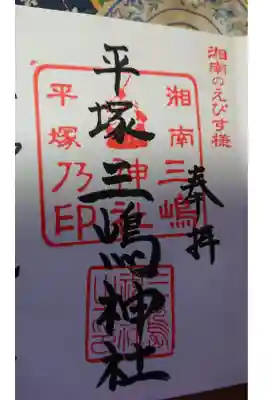 湘南のえびす様
奉拝
湘南三嶋
神社
平塚乃印
平塚三嶋神社